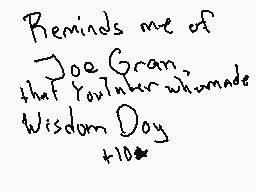 Reminds me of
Joe Gran,
that YouTuber who made
Wisdom Day
+10★